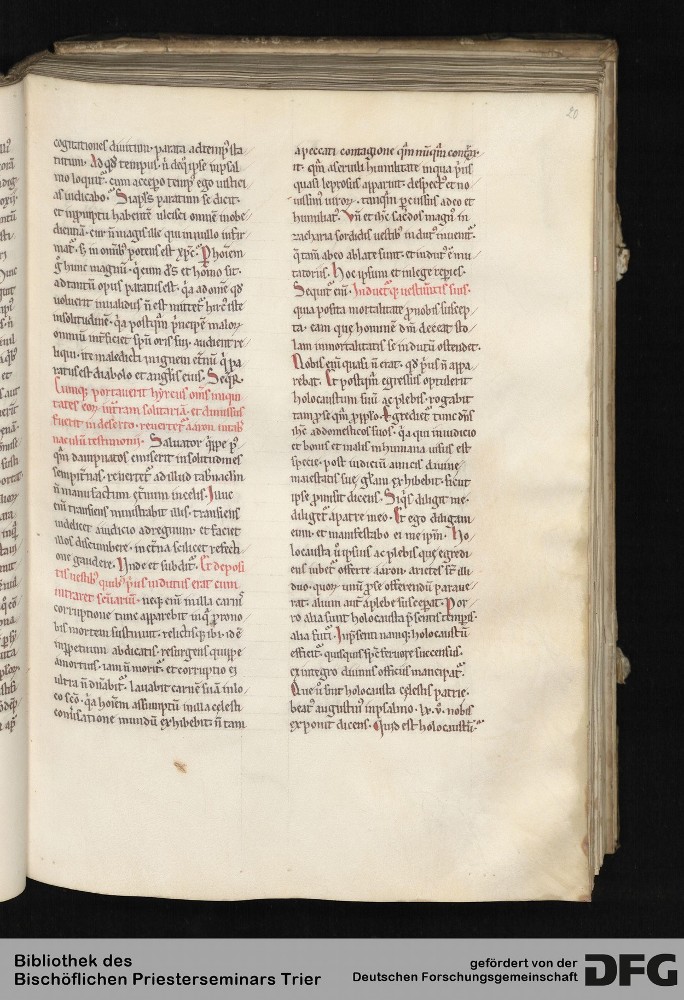 20
cogitationes diuitum. parata adtempꝰ sta
tutum. Ad qd tempus. ipse inpsal
mo loquit. cum accepo tempꝰ ego iusticı
as iudicabo. paratum se dicit.
et inpmptu habentē ulcisci omnē inobe
dientiā. cur n magis ille qui in nullo infir
matꝰ. sꝫ in omibꝰ potens est xpc. P hoiem
g hunc magnū. quem ds et homo sit.
ad tantū opus paratus est. q̄a
uoluerit inualidus n est iste
insolitudinē. q̄a postqm pncipē malorꝝ
omniū intficiet spu oris sui. audient re
liqui. ite maledicti in ignem etnū q̄ pa
ratus est diabolo et anglis eius. Seqr.
Cumqꝫ portauerit hyrcus oms iniqui
tates eoꝝ in tram solitariā. et dimissus
fuerit in deserto. reuertet aaron in tab
naculū testimonii. Saluator qppe pꝰ
qm dampnatos emiserit in solitudines
sempitnas. reuertet ad illud tabnaclm
n manufactum etnum in celis. Tunc
eni transiens ministrabit illis. transiens
uidelicet a iudicio ad regnum. et faciet
illos discumbere. in etna scilicet refecti
one gaudere. Unde et subdit. Et deposi
tis uestibꝰ quibꝰ pus indutus erat cum
intraret scuariū. neqꝫ eni in illa carnis
corruptione tunc apparebit in q̄ pro no
bis mortem sustinuit. relictisqꝫ ibi. id ē
inppetuum abdicatis. resurgens quippe
amortuis. iam n morit. et corruptio ei
ultra n dnabit. lauabit carnē suā in lo
co sco. q̄a hoiem assumptū in illa celesti
conuersatione mundū exhibebit. n tam
a peccati contagione qm nuqm contrax
it. qm a seruili humilitate in qua pus
quasi leprosus apparuit. despectꝰ et no
uissimꝰ uiroꝝ. tanqm pcussus a deo et
humiliatꝰ. Vn et ihc sacdos magnꝰ in
zacharia sordidis uestibꝰ indutꝰ inuenit.
q̄ tam ab eo ablate sunt. et indutꝰ ē mu
tatoriis. Hoc ipsum et in lege repies.
Sequit eni. Indutꝰqꝫ uestimtis suis.
quia posita mortalitate p nobis suscep
ta. ea que hominē dm deceat sto
lam inmortalitatis se indutū ostendet.
Nobis eni quasi n erat. qd pus n appa
rebat. Et postqm egressus optulerit
holocaustum suū ac plebis. rogabit
tam p se qm p pplo. Egrediet tunc dns
ihc ad domesticos suos. q̄a qui in iudicio
et bonis et malis in humana uisus est
specie. post iudiciū amicis diuine
maiestatis sue glam exhibebit. sicut
ipse pmisit dicens. Siqs diligit me.
diliget a patre meo. Et ego diligam
eum. et manifestabo ei me ipm. Ho
locausta u ipsius ac plebis que egredi
ens iubet offerre aaron. arietes st illi
duo. quoꝝ unū p se offerendū paraue
rat. alium aut a plebe susceperat. Por
ro alia sunt holocausta psentis tempis.
alia futi. In psenti namqꝫ holocaustū
efficit. quisquis spc feruore succensus.
ex integro diuinis officiis mancipat.
Que u sint holocausta celestis patrie.
beatꝰ augustinꝰ in psalmo. lx. v. nobis
exponit dicens. Quid est holocaustū.
Bibliothek des
Bischöflichen Priesterseminars Trier
gefördert von der
Deutschen Forschungsgemeinschaft
DFG